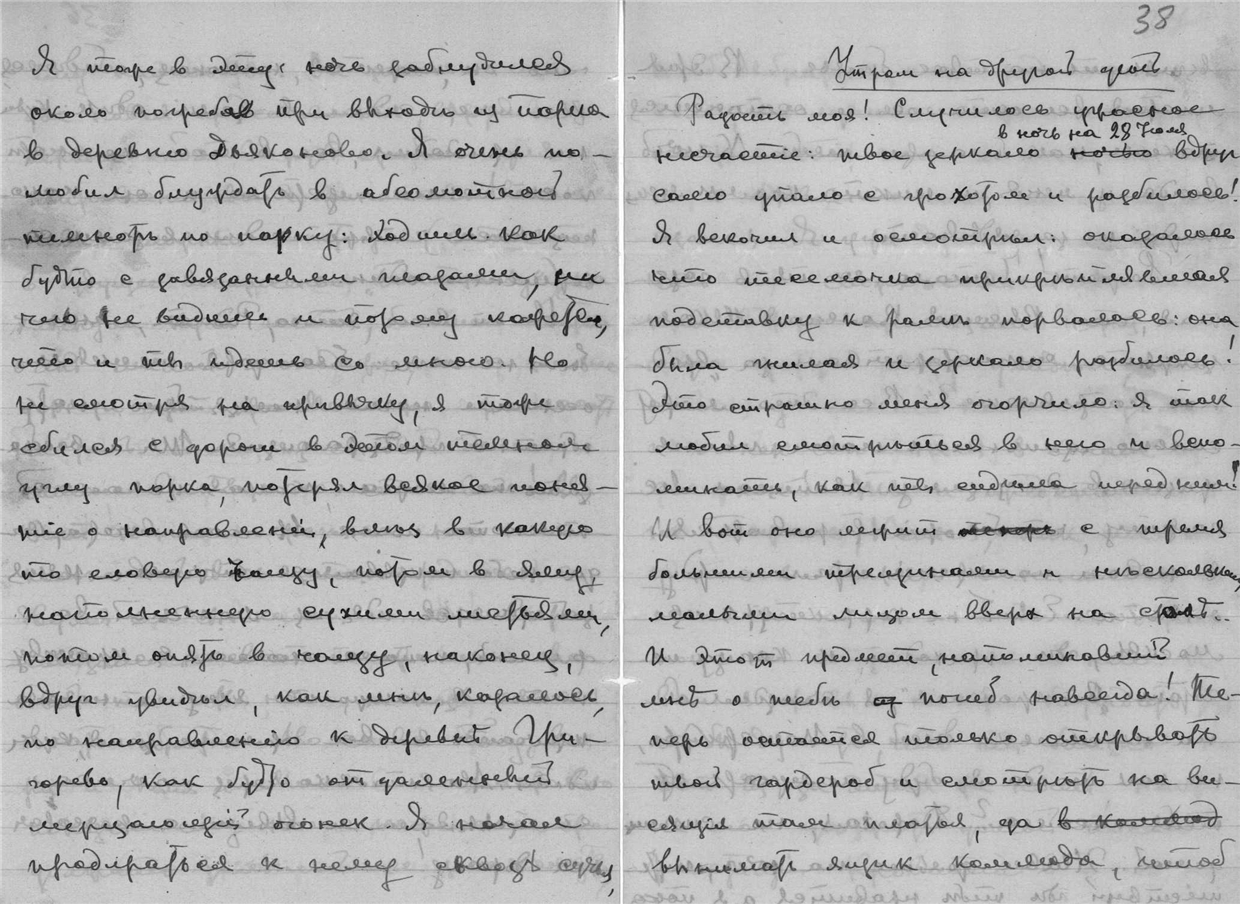 Я тоже в эту ночь заблудился
около погребов при выходѣ из парка
в деревню Дьяконово. Я очень по-
любил блуждать в абсолютной
темнотѣ по парку: ходишь как
будто с завязанными глазами, ни
чего не видишь и потому кажется,
что и ты идешь со мною. Но
не смотря на привычку, я тоже
сбился с дороги в этом темном
углу парка, потерял всякое поня-
тие о направленіи, влѣз в какую
то еловую чащу, потом в яму,
наполненную сухими листьями,
потом опять в чащу, наконец,
вдруг увидѣл, как мнѣ, казалось,
по направленію к деревнѣ Гри-
горево, как будто отдаленный
мерцающій огонек. Я начал
продираться к нему сквозь сучья,
38
Утром на другой день
Радость моя! Случилось ужасное
в ночь на 29 Июля
несчастіе: твое зеркало ночью вдруг
само упало с грохотом и разбилось!
Я вскочил и осмотрѣл: оказалось
что тесемочка прикрѣплявшая
подставку к рамѣ порвалась: она
была гнилая и зеркало разбилось!
Это страшно меня огорчило: я так
любил смотрѣться в него и вспо-
минать, как ты сидѣла перед ним!
И вот оно лежит теперь с тремя
большими трещинами и нѣсколькими
малыми лицом вверх на столѣ.
И этот предмет, напоминавшій
мнѣ о тебѣ погиб навсегда! Те-
перь остается только открывать
твой гардероб и смотрѣть на ви-
сящія там платья, да в комод
вынимать ящик комода, чтоб